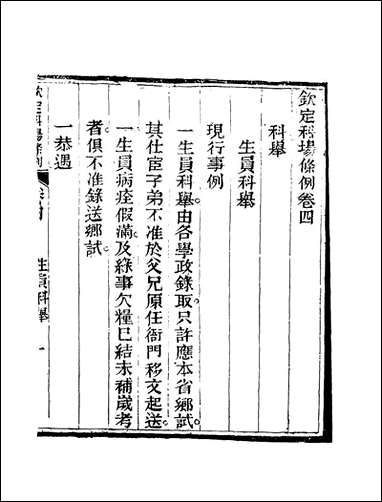 欽定科場條例卷四
科舉
生員科舉
現行事例
一生員科舉由各學政錄取只許應本省鄉試
其仕宦子弟不准於父兄原任衙門移文起送
一生員病痊假滿及緣事欠糧已結未補歲考
者俱不准錄送鄉試
一恭遇
欽定科場條例
生員科舉
一